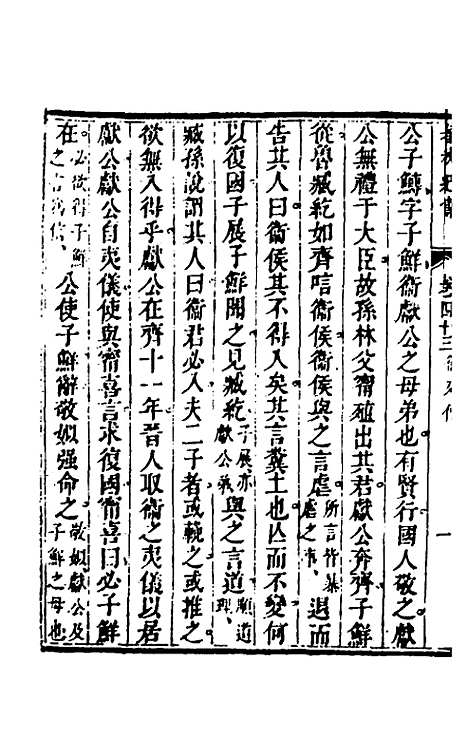 卷四十三
公子鱄字子鮮衞獻公之母弟也有賢行國人敬之獻
公無禮于大臣故孫林父甯殖出其君獻公奔齊子鮮
從魯臧紇如齊唁衞侯衞侯與之言虐所言皆暴虐之事退而
告其人曰衞侯其不得入矣其言糞土也亾而不變何
以復國子展子鮮聞之見臧紇子展亦獻公弟與之言道順道理
臧孫說謂其人曰衞君必入夫二子者或輓之或推之
欲無入得乎獻公在齊十一年晉人取衞之夷儀以居
獻公獻公自夷儀使與甯喜言求復國甯喜曰必子鮮
在必欲得子鮮之言爲信公使子鮮辭敬姒强命之敬姒獻公及子鮮之母也